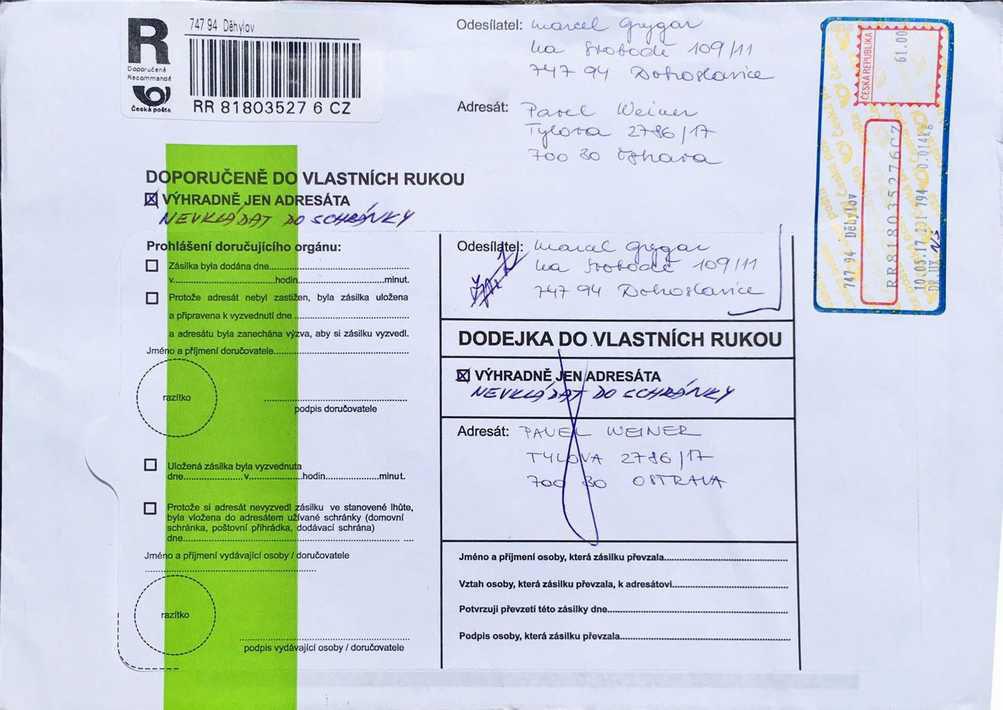 R
Doporučeně
Recommandé
Česká pošta
747 94 Děhylov
RR 81803527 6 CZ
Odesílatel: Marcel Grygar
Na Svobodě 109/11
747 94 Dobroslavice
Adresát: Pavel Weiner
Tylova 2786/17
700 30 Ostrava
ČESKÁ REPUBLIKA
61.00
747 94 Děhylov
RR818035276CZ
10.05.17 231 794 0.014kg
DR UX
DOPORUČENĚ DO VLASTNÍCH RUKOU
VÝHRADNĚ JEN ADRESÁTA
NEVKLÁDAT DO SCHRÁNKY
Prohlášení doručujícího orgánu:
Zásilka byla dodána dne
v hodin minut.
Protože adresát nebyl zastižen, byla zásilka uložena
a připravena k vyzvednutí dne
a adresátu byla zanechána výzva, aby si zásilku vyzvedl.
Jméno a příjmení doručovatele
razítko
podpis doručovatele
Uložená zásilka byla vyzvednuta
dne v hodin minut.
Protože si adresát nevyzvedl zásilku ve stanovené lhůtě,
byla vložena do adresátem užívané schránky (domovní
schránka, poštovní přihrádka, dodávací schrána)
dne
Jméno a příjmení vydávající osoby / doručovatele
razítko
podpis vydávající osoby / doručovatele
Odesílatel: Marcel Grygar
Na Svobodě 109/11
747 94 Dobroslavice
DODEJKA DO VLASTNÍCH RUKOU
VÝHRADNĚ JEN ADRESÁTA
NEVKLÁDAT DO SCHRÁNKY
Adresát: PAVEL WEINER
TYLOVA 2786/17
700 30 OSTRAVA
Jméno a příjmení osoby, která zásilku převzala
Vztah osoby, která zásilku převzala, k adresátovi
Potvrzuji převzetí této zásilky dne
Podpis osoby, která zásilku převzala